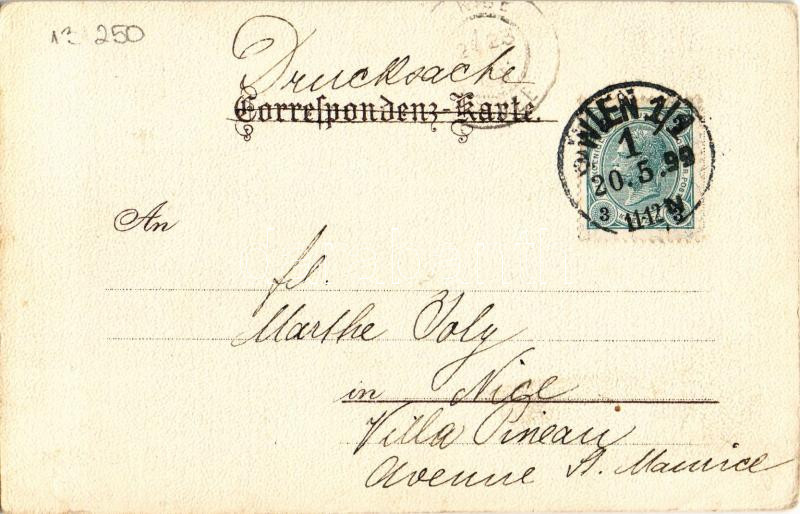 13 250
NIGE
23
Drucksache
Correspondenz-Karte.
WIEN 1/1
1
20.5.99
11-12 N
3 3
An
frl.
Marthe Joly
in Nige
Villa Pineau
Avenue St. Maurice